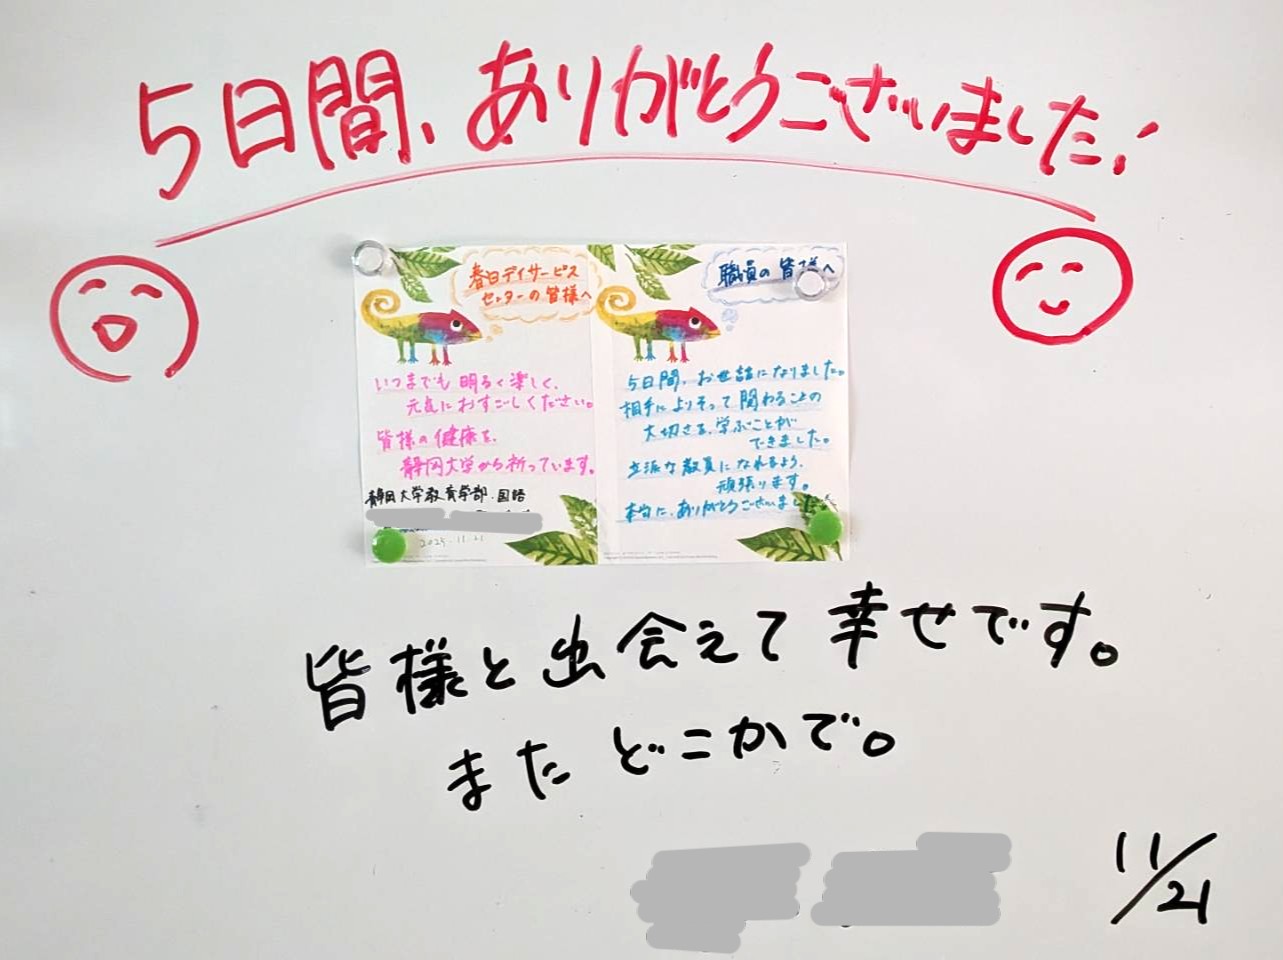 5日間、ありがとうございました!
春日デイサービス
センターの皆様へ
いつまでも明るく楽しく、
元気におすごしください。
皆様の健康を、
静岡大学から祈っています。
静岡大学教育学部・国語
2025.11.21
職員の皆様へ
5日間、お世話になりました。
相手によりそって関わることの
大切さを、学ぶことが
できました。
立派な教員になれるよう、
頑張ります。
本当に、ありがとうございました。
皆様と出会えて幸せです。
またどこかで。
11/21